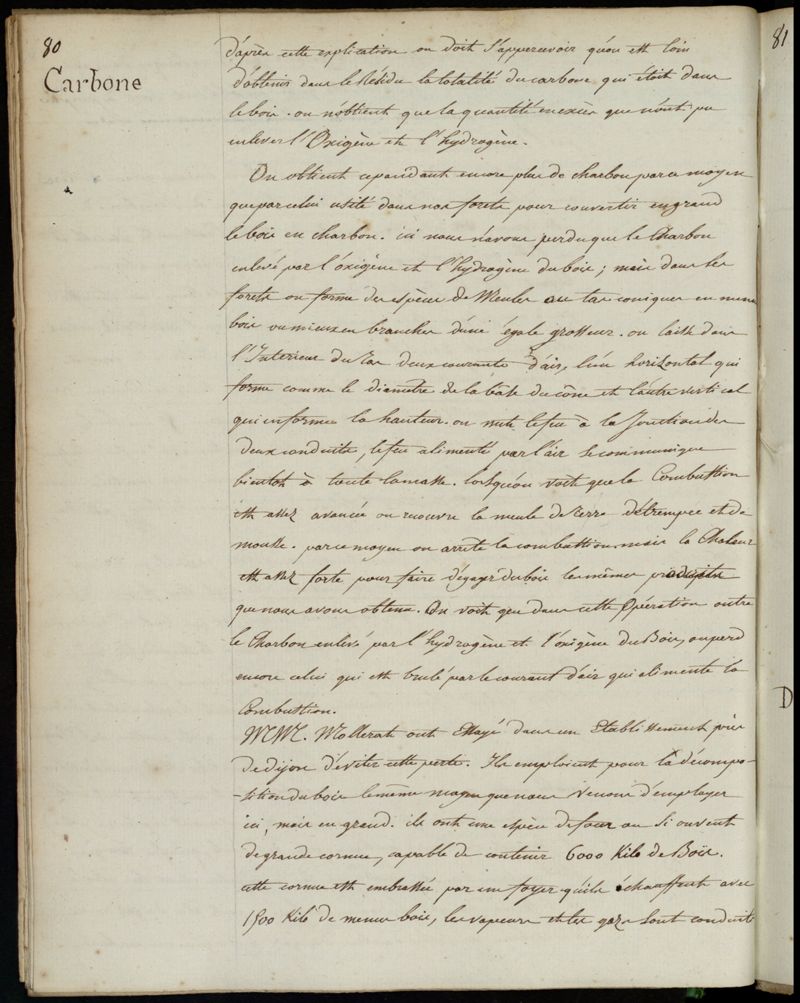 80
81
Carbone
d'après cette explication on doit s'appercevoir qu'on est loin
d'obtenir dans le Résidu la totalité du carbone qui étoit dans
le bois. on n'obtient que la quantité en excès que n'ont pu
enlever l'Oxigène et l'hydrogène.
On obtient cependant encore plus de charbon par ce moyen
que par celui usité dans nos forets pour convertir en grand
le bois en charbon. ici nous n'avons perdu que le Charbon
enlevé par l'oxigène et l'hydrogène du bois; mais dans les
forets on forme des espèces de Meules ou tas coniques en menu
bois ou mieux en branches d'une égale grosseur. on laisse dans
l'Interieur du tas deux courants d'air, l'un horizontal qui
forme comme le diamètre de la base du cône et l'autre vertical
qui en forme la hauteur. on met le feu à la Jonction des
deux conduits, le feu alimenté par l'air se communique
bientôt à toute la masse. lorsqu'on voit que la Combustion
est assez avancée on recouvre la meule de terre détrempée et de
mousse. par ce moyen on arrête la combustion mais la Chaleur
est assez forte pour faire dégager du bois les mêmes produits
que nous avons obtenu. On voit que dans cette Opération outre
le Charbon enlevé par l'hydrogène et l'oxigène du Bois, on perd
encore celui qui est brulé par le courant d'air qui alimente la
Combustion.
M.M. Mollerat ont Essayé dans un Etablissement près
de dijon d'éviter cette perte. Ils emploient pour la décompo-
-sition du bois le même moyen que nous venons d'employer
ici, mais en grand. ils ont une espèce de four ou Si on veut
de grande cornue, capable de contenir 6000 Kilo de Bois.
cette cornue est embrassée par un foyer qu'ils échauffent avec
1500 Kilo de menu bois, les vapeurs et les gazs sont conduits
D